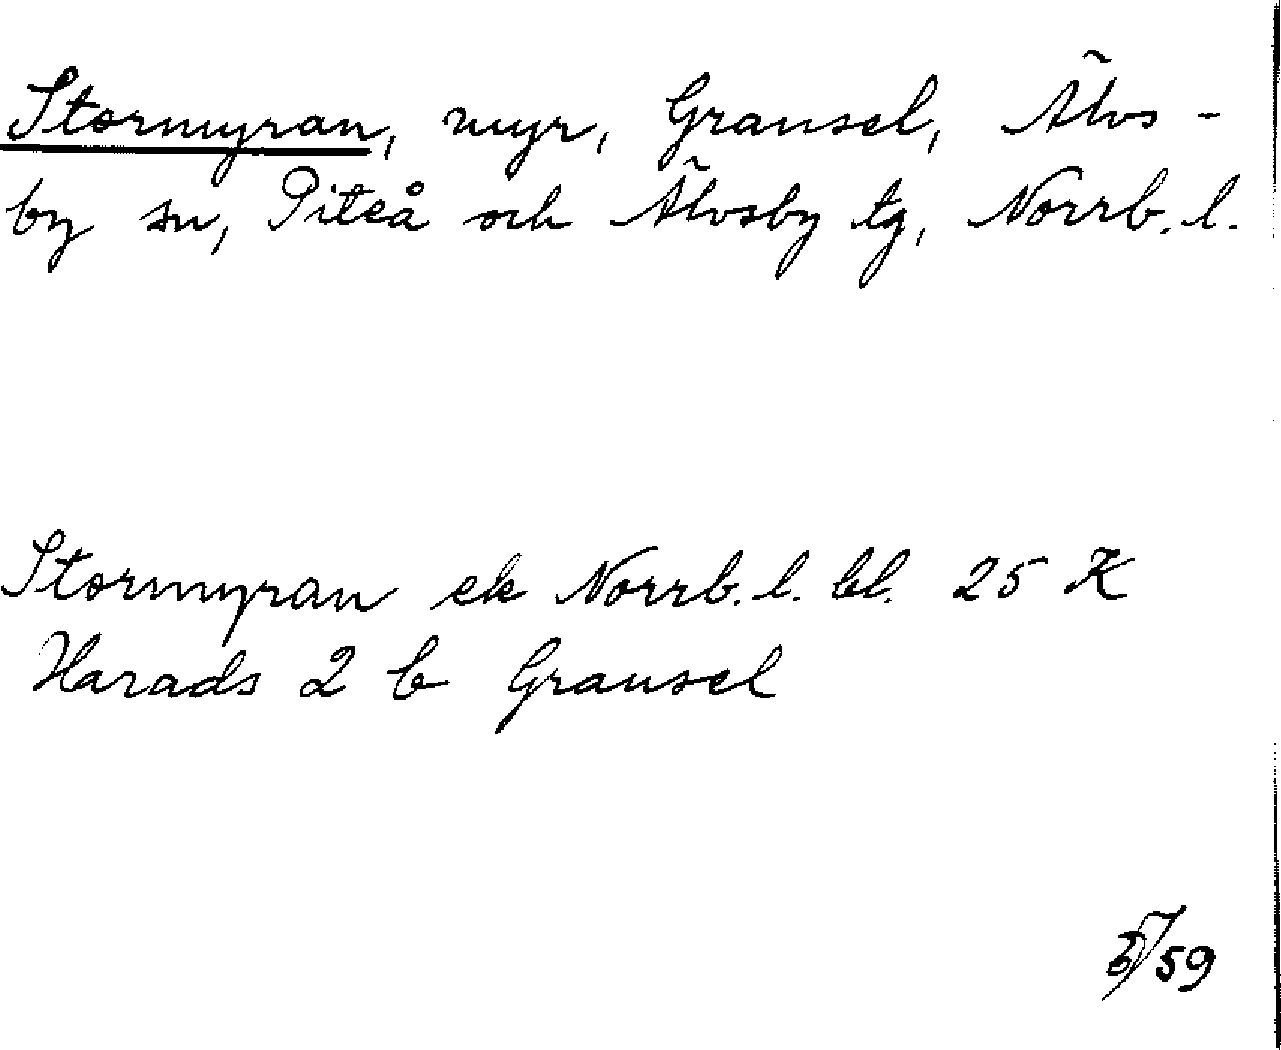 Stormyran, myr, Gransel, Älvs-
by sn, Piteå och Älvsby tg, Norrb. l.
Stormyran ek Norrb. l. bl. 25 K
Harads 2 b Gransel
59